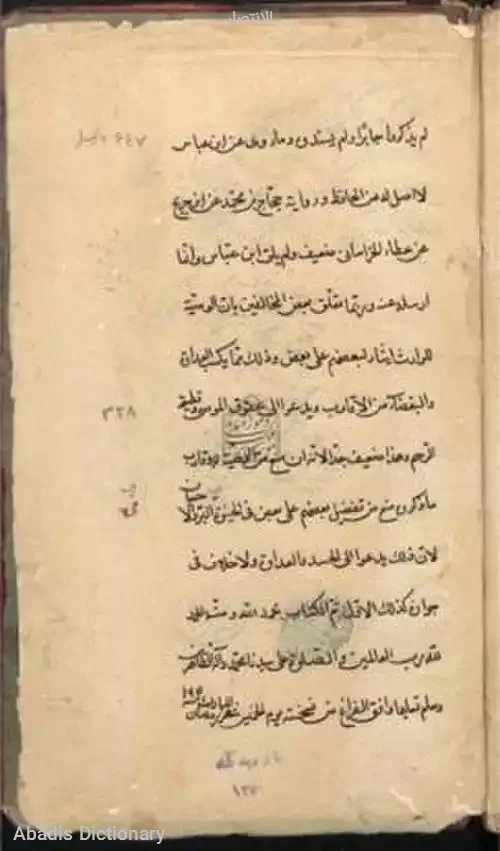 الانتصار
لم يذكروا جابرا ولم يسندوه وما روى عن ابن عباس
لا اصل له عن الحافظ ورواية حجاج بن محمد عن ابن جريج
عن عطاء الخراسانى ضعيف ولم يلق ابن عباس وانما
ارسله عنه وربما تعلق بعض المخالفين بان الوصية
للوارث ايثار لبعضهم على بعض وذلك مما يكسب العداوة
والبغضاء من الاقارب ويدعو الى عقوق الموصى وقطيعة
الرحم وهذا ضعيف جدا لانه ان منع من الوصية للاقارب
ما ذكروه منع من تفضيل بعضهم على بعض فى الحيوة البر والاحسان
لان ذلك يدعوا الى الحسد والعداوة ولا خلاف فى
جوازه كذلك الاول تم الكتاب بحمد الله ومنه والحمد
لله رب العالمين والصلوة على سيدنا محمد وآله الطاهرين
وسلم تسليما وافق الفراغ من نسخته يوم الخميس
٦٤٧
٣٢٨
بازدید شد
١٣٥
Abadis Dictionary